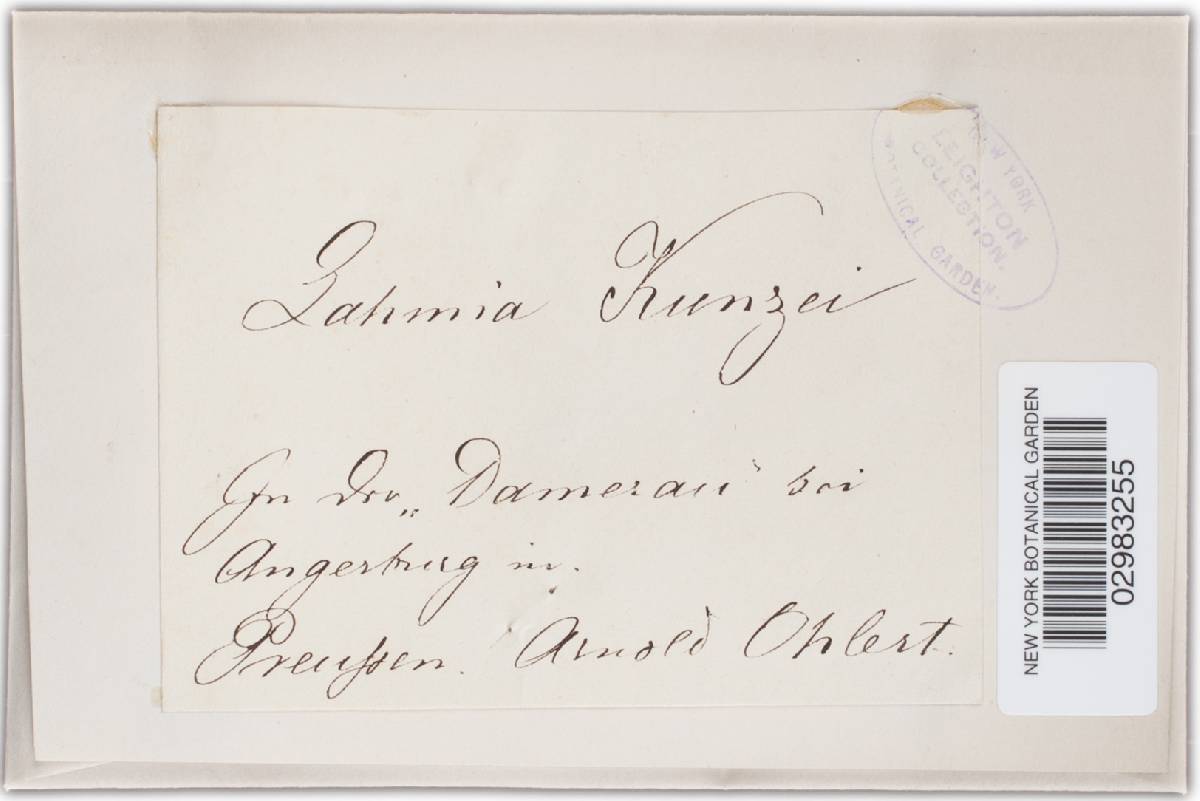 Lahmia Kunzei
In der „Damerau“ bei
Angerburg in
Preußen. Arnold Ohlert.
NEW YORK
LEIGHTON
COLLECTION.
BOTANICAL GARDEN.
NEW YORK BOTANICAL GARDEN
02983255